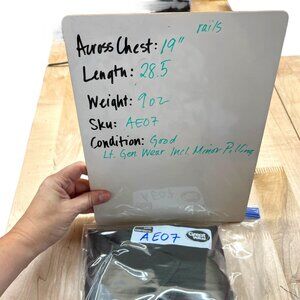 rails
Across Chest: 19"
Length: 28.5
Weight: 9oz
Sku: AE07
Condition: Good
Lt. Gen Wear Incl. Minor Pilling
AE07